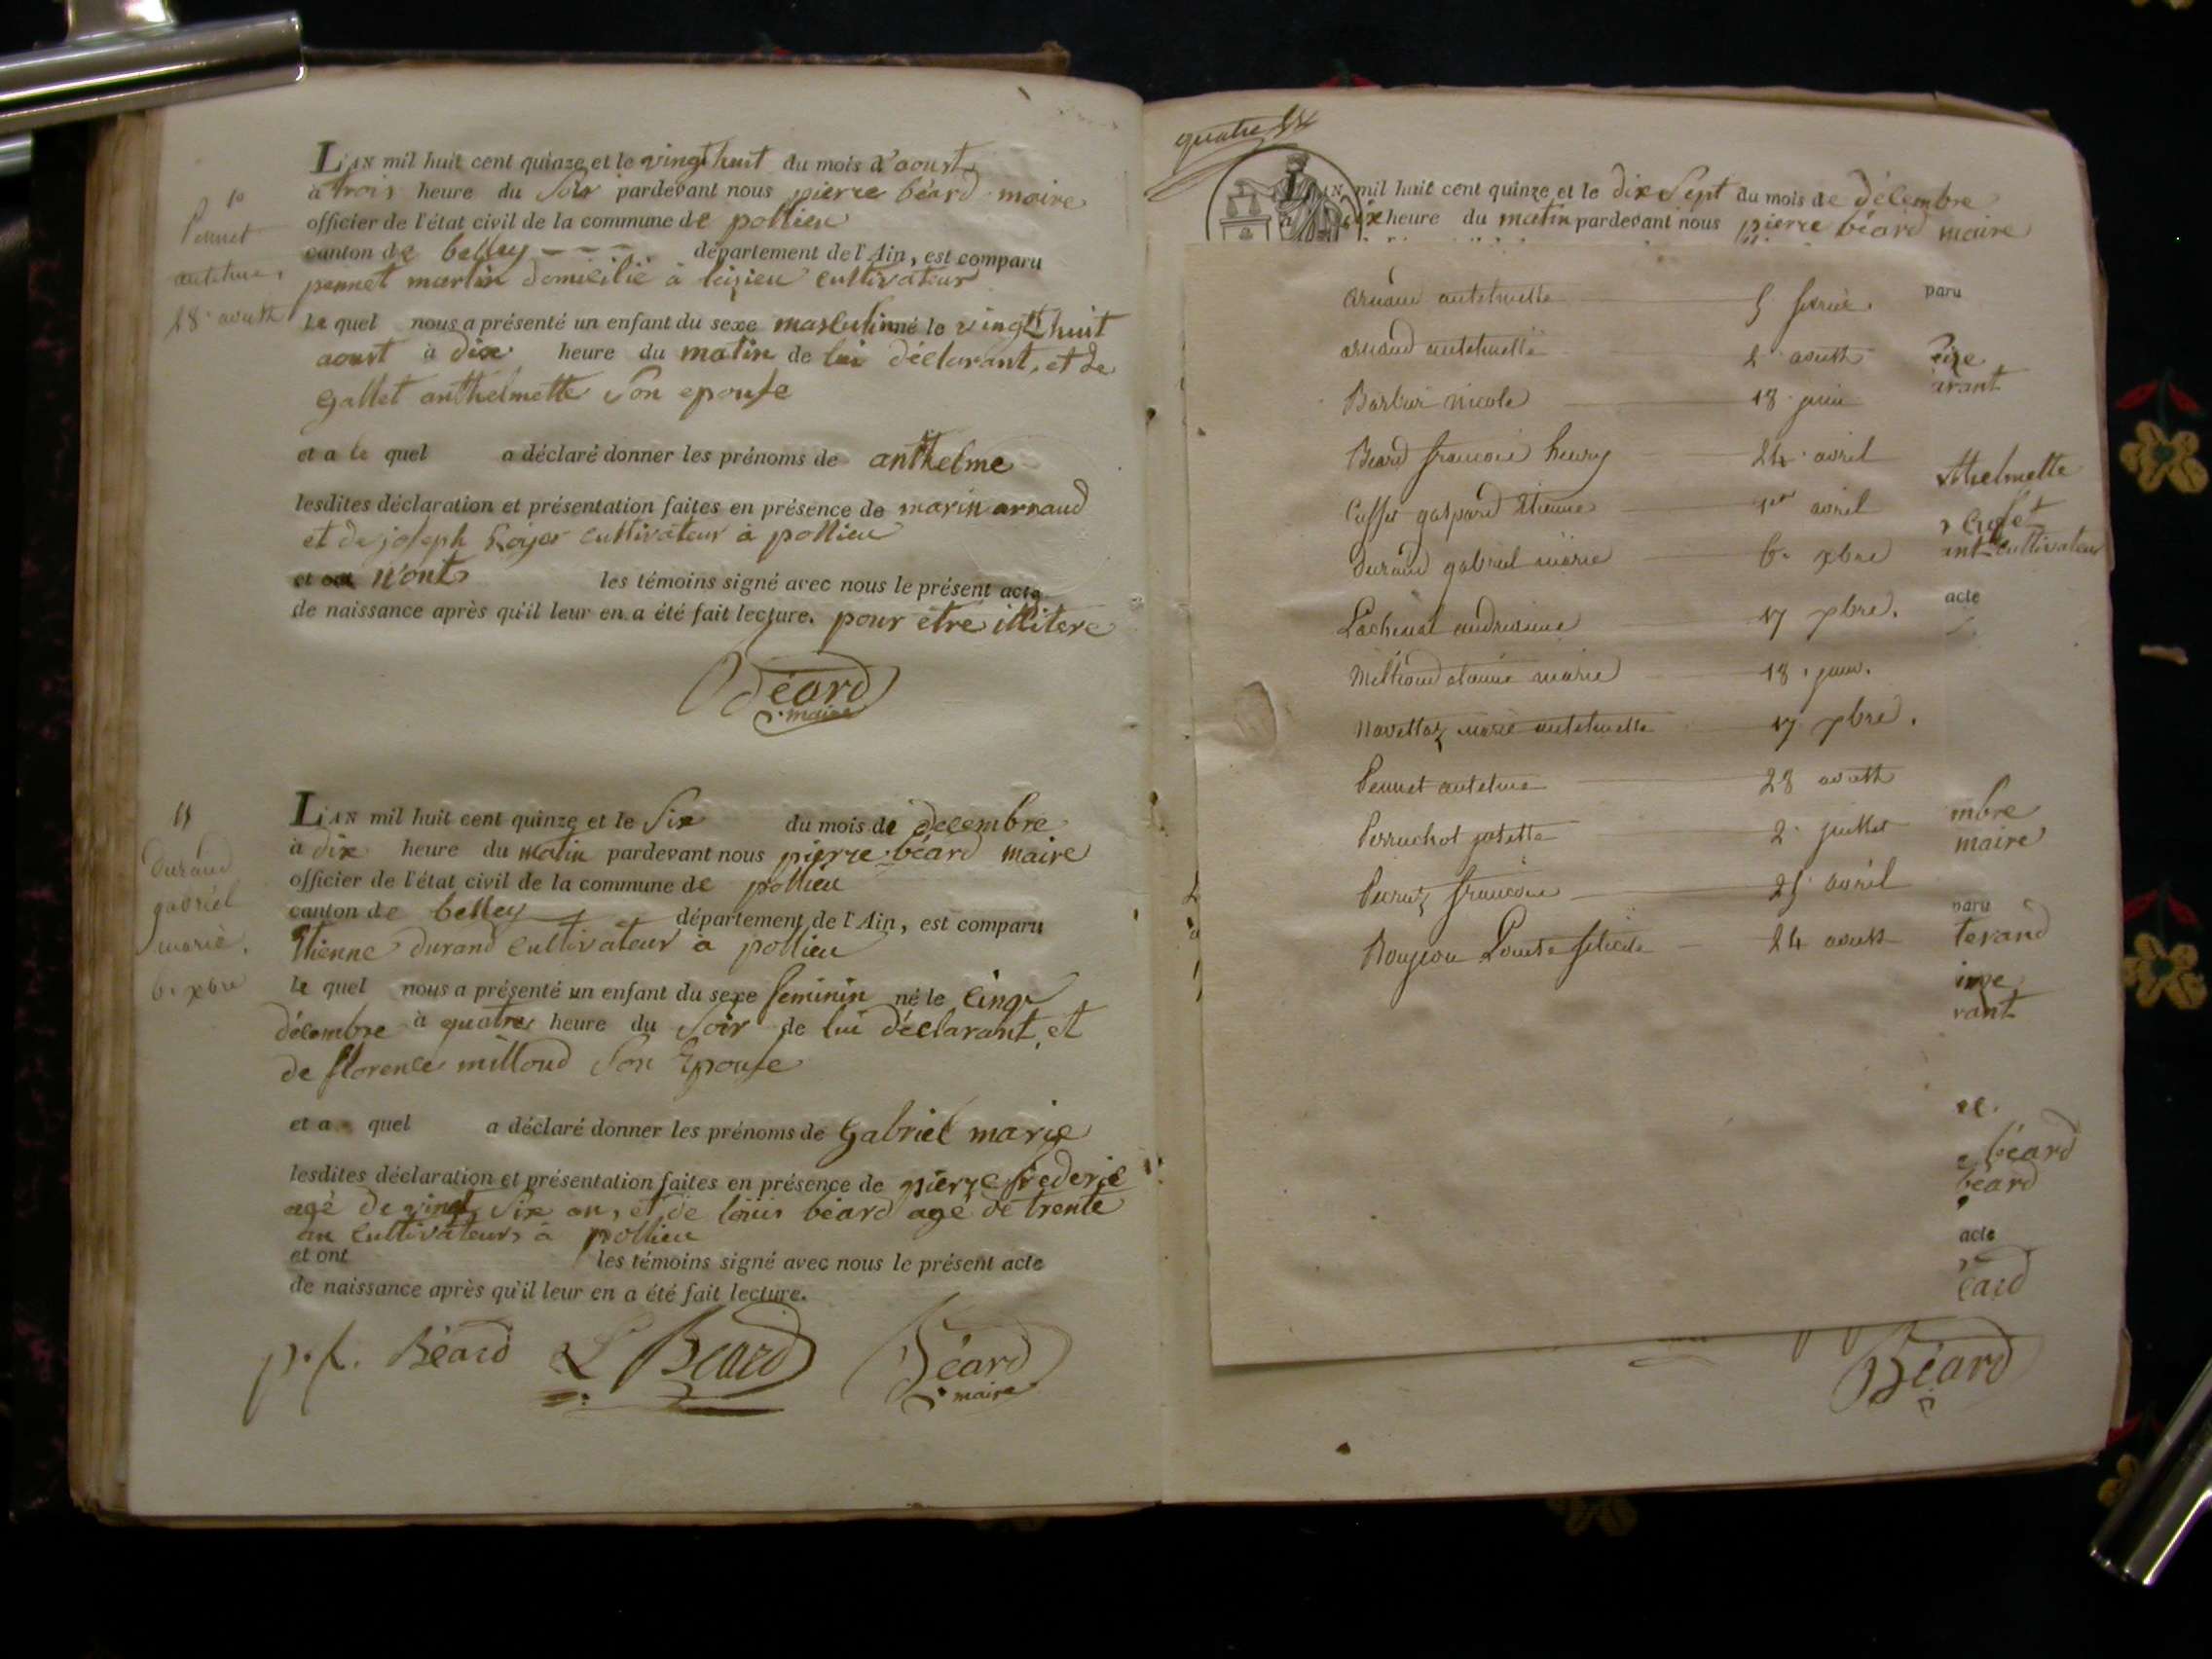 10
Pennet
antelme
28 aoust
L'AN mil huit cent quinze et le vingt huit du mois d'aoust
à trois heure du soir pardevant nous pierre béard maire
officier de l'état civil de la commune de pollieu
canton de belley département de l'Ain, est comparu
pennet martin domicilié à leizieu cultivateur
le quel nous a présenté un enfant du sexe masculin né le vingt huit
aoust à dix heure du matin de lui déclarant, et de
gallet anthelmette son epouse
et a le quel a déclaré donner les prénoms de anthelme
lesdites déclaration et présentation faites en présence de marin arnaud
et de joseph Roijer cultivateur à pollieu
et n'ont les témoins signé avec nous le présent acte
de naissance après qu'il leur en a été fait lecture. pour etre illitere
Béard
maire
11
Durand
gabriel
marie.
6. xbre
L'AN mil huit cent quinze et le Six du mois de decembre
à dix heure du matin pardevant nous pierre béard maire
officier de l'état civil de la commune de pollieu
canton de belley département de l'Ain, est comparu
Etienne durand cultivateur à pollieu
le quel nous a présenté un enfant du sexe feminin né le cinq
décembre à quatre heure du soir de lui déclarant, et
de florence milloud son Epouse
et a quel a déclaré donner les prénoms de Gabriel marie
lesdites déclaration et présentation faites en présence de pierre frederic
agé de vingt six an, et de louis béard agé de trente
an cultivateurs à pollieu
et ont les témoins signé avec nous le présent acte
de naissance après qu'il leur en a été fait lecture.
p. f. Béard L Beard Béard
maire
quatre
L'AN mil huit cent quinze et le dix Sept du mois de décembre
à dix heure du matin pardevant nous pierre béard maire
arnaud antelmette 5 fevrier.
arnaud antelmette 2 aoust
Barbier nicole 18 juin
Beard francois henry 24 avril
Cusset gaspard Etienne 1er avril
Durand gabriel marie 6. xbre
Lachenal andrienne 17 xbre.
Milliond etienne marie 18. janv.
Navettaz marie antelmette 17 xbre.
Pennet antelme 28 aoust
Perruchot josette 2. juillet
Pecruz francoise 25 avril
Roujeon Louise felicite 24 aoust
paru
eize
arant
thelmette
ant cultivateur
acte
mbre
maire
paru
terand
rant
béard
béard
acte
eard
Béard